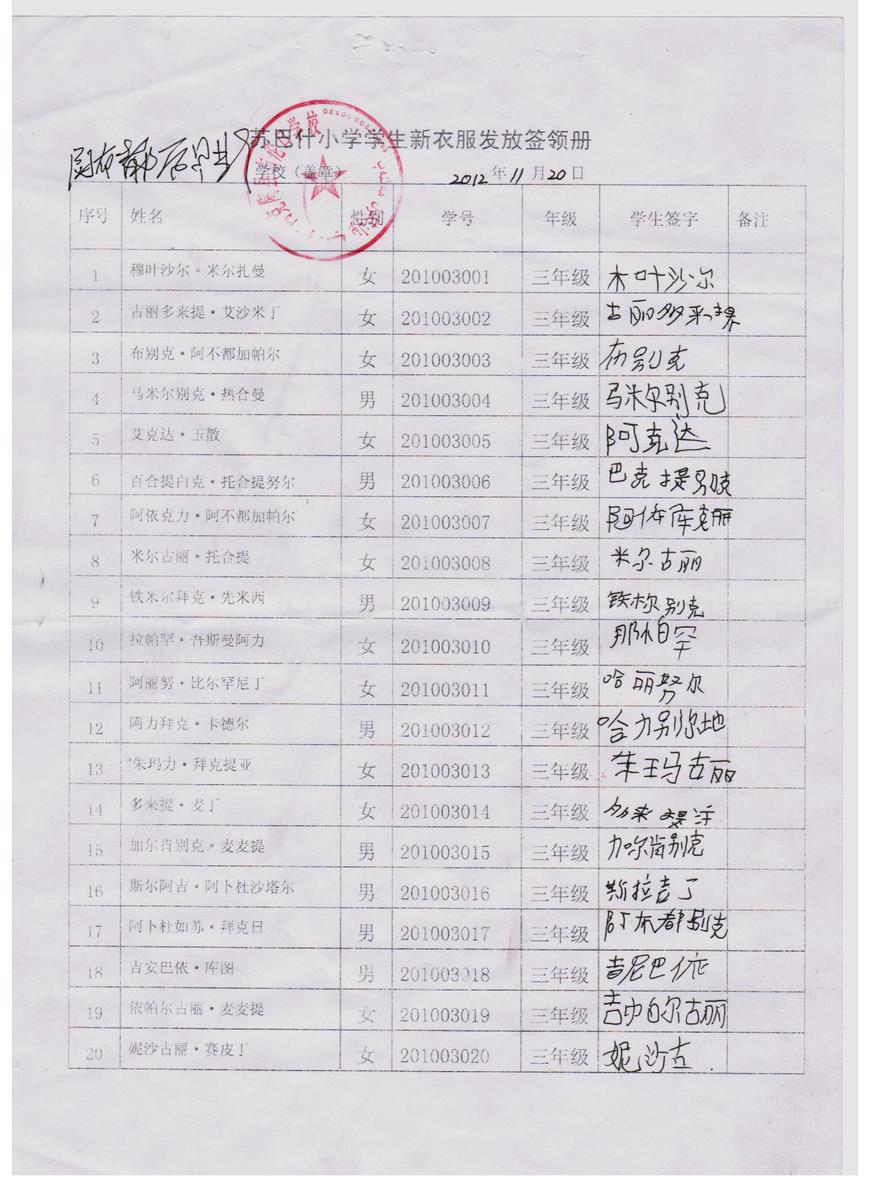 苏巴什小学学生新衣服发放签领册
学校（盖章） 2012年11月20日
序号 姓名 性别 学号 年级 学生签字 备注
1 穆叶沙尔·米尔扎曼 女 201003001 三年级 木叶沙尔
2 古丽多来提·艾沙米丁 女 201003002 三年级 古丽多来
3 布别克·阿不都加帕尔 女 201003003 三年级 布别克
4 马米尔别克·热合曼 男 201003004 三年级 马米尔别克
5 艾克达·玉散 女 201003005 三年级 阿克达
6 百合提白克·托合提努尔 男 201003006 三年级 巴克提别克
7 阿依克力·阿不都加帕尔 女 201003007 三年级 阿依库克丽
8 米尔古丽·托合提 女 201003008 三年级 米尔古丽
9 铁米尔拜克·先米西 男 201003009 三年级 铁米尔别克
10 拉帕罕·吾斯曼阿力 女 201003010 三年级 那帕罕
11 阿丽努·比尔罕尼丁 女 201003011 三年级 哈丽努尔
12 阿力拜克·卡德尔 男 201003012 三年级 哈力别尔地
13 朱玛力·拜克提亚 女 201003013 三年级 朱玛古丽
14 多来提·麦丁 女 201003014 三年级 多来提
15 加尔肯别克·麦麦提 男 201003015 三年级 加尔肯别克
16 斯尔阿吉·阿卜杜沙塔尔 男 201003016 三年级 斯拉吉丁
17 阿卜杜如苏·拜克日 男 201003017 三年级 都别克
18 吉安巴依·库图 男 201003018 三年级 吉尼巴依
19 依帕尔古丽·麦麦提 女 201003019 三年级 吉帕尔古丽
20 妮沙古丽·赛皮丁 女 201003020 三年级 妮沙古